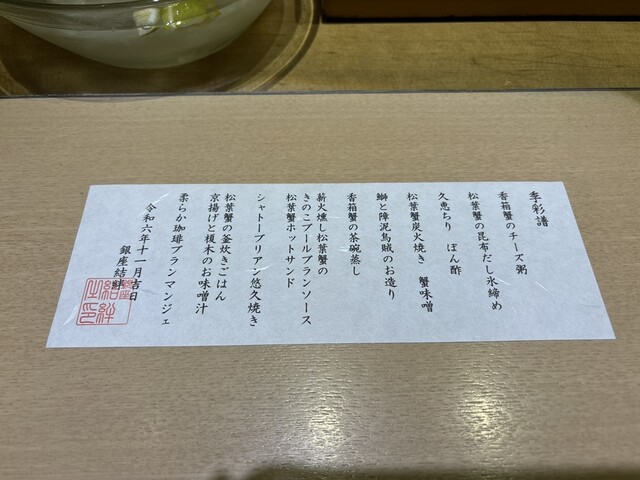 季彩譜
香箱蟹のチーズ粥
松葉蟹の昆布だし氷締め
久恵ちり　ぽん酢
松葉蟹炭火焼き　蟹味噌
鰤と障泥烏賊のお造り
香箱蟹の茶碗蒸し
薪火燻し松葉蟹の
きのこブールブランソース
松葉蟹ホットサンド
シャトーブリアン悠久焼き
松葉蟹の釜炊きごはん
京揚げと榎木のお味噌汁
柔らか珈琲ブランマンジェ
令和六年十一月吉日
銀座結絆
銀座
結絆
之印